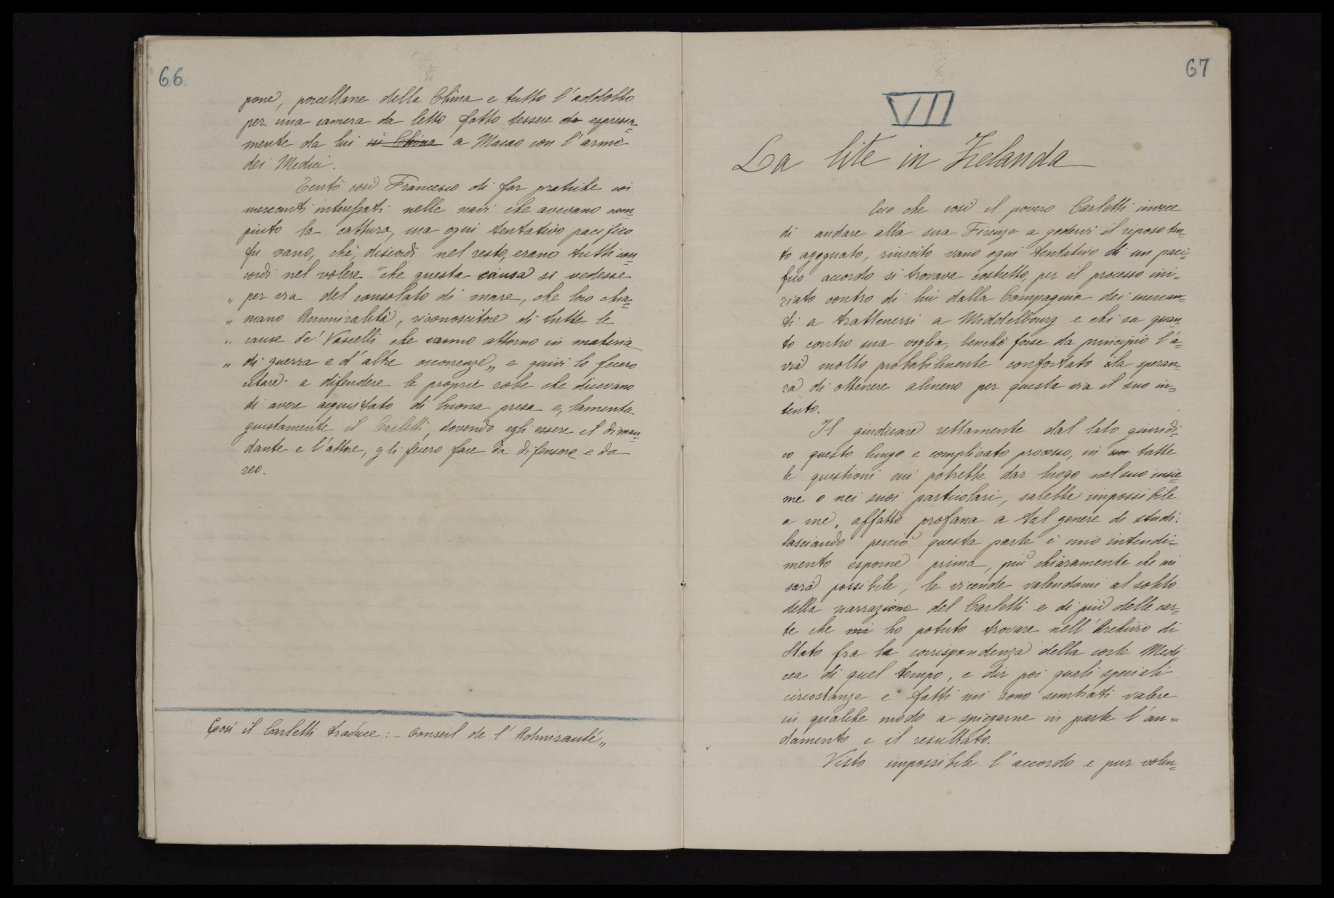 66
pone, porcellane della China e tutto l'addobbo
per una camera da letto fatto tessere da espressa=
mente da lui in China a Macao con l'arme
dei Medici.
Tentò così Francesco di far pratiche coi
mercanti interessati nelle navi che avevano com=
piuto la cattura, ma ogni tentativo pacifico
fu vano, chè, discordi nel resto, erano tutti con=
cordi nel volere "che questa causa si vedesse
" per via del consolato di mare, che loro chia=
" mano Ammiralità, riconoscitore di tutte le
" cause de' Vascelli che vanno attorno in materia
" di guerra e d'altre occorrenze„ e quivi lo fecero
citare a difendere le proprie robe che dicevano
di avere acquistato di buona presa e, lamenta
giustamente il Carletti, dovendo egli essere il diman=
dante e l'attore, gli fecero fare da difensore e da
reo.
Così il Carletti traduce: - Conseil de l'Admirauté„
67
VII
La lite in Zelanda
Ecco che così il povero Carletti invece
di andare alla sua Firenze a godervi il riposo tan=
to agognato, riuscito vano ogni tentativo di un paci=
fico accordo si trovava costretto per il processo ini=
ziato contro di lui dalla Compagnia dei mercan=
ti a trattenersi a Middelbourg e chi sa quan=
to contro sua voglia, benchè forse da principio l'a=
vrà molto probabilmente confortato la speran=
za di ottenere almeno per questa via il suo in=
tento.
Il giudicare rettamente dal lato giuridi=
co questo lungo e complicato processo, in tutte
le questioni cui potrebbe dar luogo nel suo insie=
me o nei suoi particolari, sarebbe impossibile
a me, affatto profana a tal genere di studi:
lasciando perciò questa parte è mio intendi=
mento esporne prima, più chiaramente che mi
sarà possibile, le vicende valendomi al solito
della narrazione del Carletti e di più delle car=
te che mi ho potuto trovare nell'Archivio di
Stato fra la corrispondenza della corte Medi=
cea di quel tempo, e dir poi quali speciali
circostanze e fatti mi sono sembrati valere
in qualche modo a spiegarne in parte l'an=
damento e il resultato.
Visto impossibile l'accordo e pur volen=